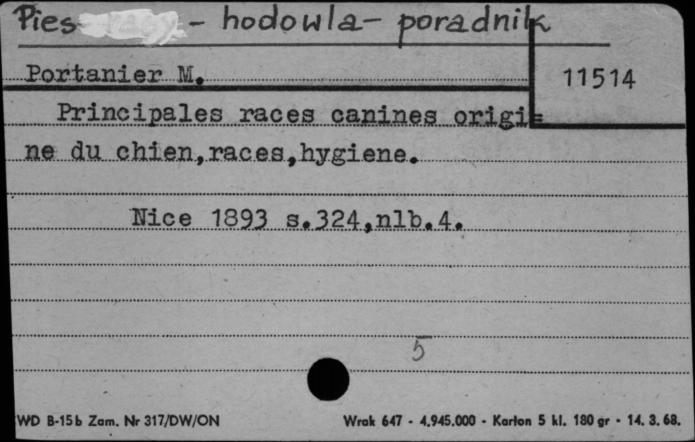 Pies - hodowla - poradnik
Portanier M.
11514
Principales races canines origi=
ne du chien,races,hygiene.
Nice 1893 s.324,nlb.4.
5
WD B-15b Zam. Nr 317/DW/ON
Wrak 647 - 4.945.000 - Karton 5 kl. 180 gr - 14. 3. 68.